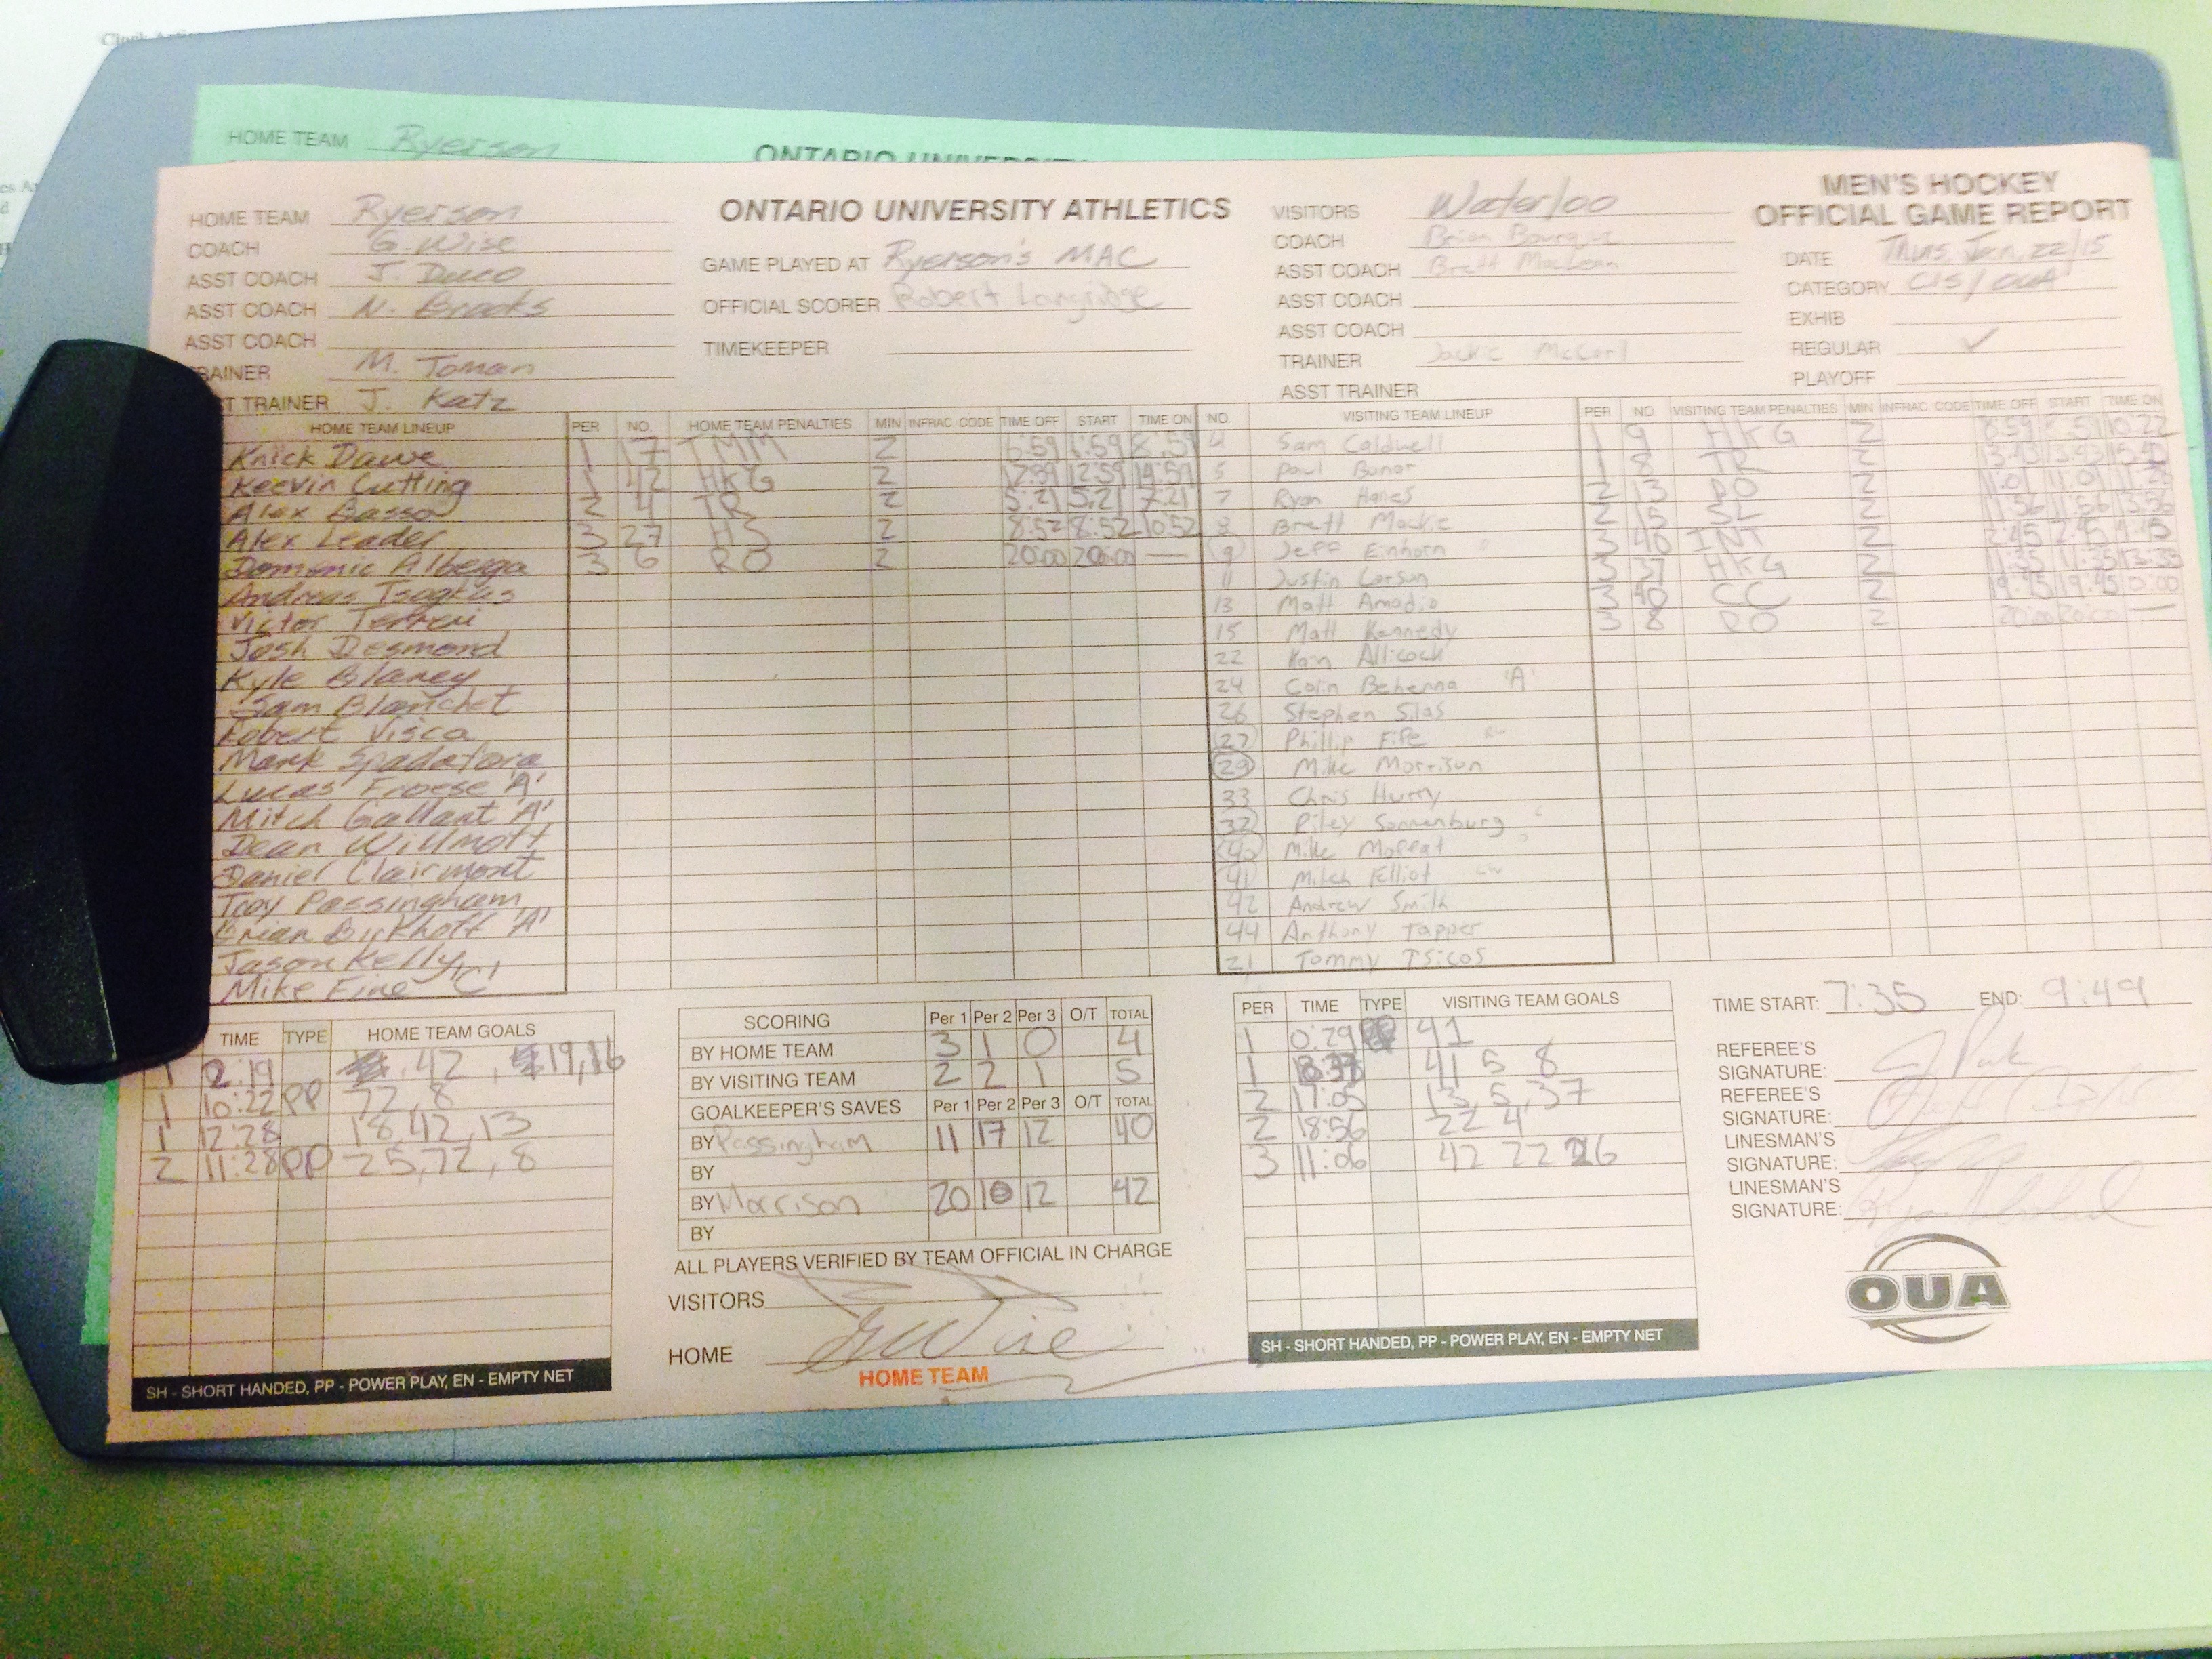 HOME TEAM Ryerson
ONTARIO UNIVERSITY
HOME TEAM Ryerson
COACH G. Wise
ASST COACH J. Duco
ASST COACH N. Brooks
ASST COACH
TRAINER M. Toman
ST TRAINER J. Katz
ONTARIO UNIVERSITY ATHLETICS
GAME PLAYED AT Ryerson's MAC
OFFICIAL SCORER Robert Langridge
TIMEKEEPER
VISITORS Waterloo
COACH Brian Bourque
ASST COACH Brett MacLean
ASST COACH
ASST COACH
TRAINER Jackie
ASST TRAINER
MEN'S HOCKEY
OFFICIAL GAME REPORT
DATE Thurs, Jan, 22/15
CATEGORY CIS/OUA
EXHIB
REGULAR ✓
PLAYOFF
HOME TEAM LINEUP
Knick Dawe
Keevin Cutting
Alex Basso
Alex Leader
Domenic Alberga
Andreas Tsogkas
Victor Terreri
Josh Desmond
Kyle Blaney
Sam Blanchet
Robert Visca
Mark Spadafora
Lucas Froese 'A'
Mitch Gallant 'A'
Dean Willmott
Daniel Clairmont
Troy Passingham
Brian Birkhoff 'A'
Jason Kelly
Mike Fine 'C'
PER NO. HOME TEAM PENALTIES MIN INFRAC CODE TIME OFF START TIME ON
1 17 TMM 2 6:59 6:59 8:59
1 42 HKG 2 12:59 12:59 14:59
2 4 TR 2 5:21 5:21 7:21
3 27 HS 2 8:52 8:52 10:52
3 6 RO 2 20:00 20:00 —
NO. VISITING TEAM LINEUP
4 Sam Caldwell
5 Paul Bonar
7 Ryan Hanes
8 Brett Mackie
9 Jeff Einhorn
11 Justin Larson
13 Matt Amadio
15 Matt Kennedy
22 Kain Allicock
24 Colin Behenna 'A'
26 Stephen Silas
27 Phillip Fife
29 Mike Morrison
33 Chris Hurry
37 Riley Sonnenburg
40 Mike Moffat
41 Mitch Elliot
42 Andrew Smith
44 Anthony Tapper
21 Tommy Tsicos
PER NO. VISITING TEAM PENALTIES MIN INFRAC CODE TIME OFF START TIME ON
1 9 HKG 2 8:59 8:59 10:22
1 8 TR 2 13:43 13:43 15:43
2 13 RO 2 11:01 11:01 11:28
2 15 SL 2 11:56 11:56 13:56
3 40 INT 2 2:45 2:45 4:45
3 37 HKG 2 11:35 11:35 13:35
3 40 CC 2 19:45 19:45 0:00
3 8 RO 2 20:00 20:00 —
TIME TYPE HOME TEAM GOALS
1 2:19 42, 19,16
1 10:22 PP 72,8
1 12:28 18,42,13
2 11:28 PP 25,72,8
SH - SHORT HANDED, PP - POWER PLAY, EN - EMPTY NET
SCORING Per 1 Per 2 Per 3 O/T TOTAL
BY HOME TEAM 3 1 0 4
BY VISITING TEAM 2 2 1 5
GOALKEEPER'S SAVES Per 1 Per 2 Per 3 O/T TOTAL
BY Passingham 11 17 12 40
BY
BY Morrison 20 10 12 42
BY
ALL PLAYERS VERIFIED BY TEAM OFFICIAL IN CHARGE
VISITORS
HOME G Wise
HOME TEAM
PER TIME TYPE VISITING TEAM GOALS
1 0:29 41
1 41 5 8
2 17:05 13,5,37
2 18:56 22 4
3 11:06 42 22 26
SH - SHORT HANDED, PP - POWER PLAY, EN - EMPTY NET
TIME START: 7:35 END: 9:49
REFEREE'S
SIGNATURE:
REFEREE'S
SIGNATURE:
LINESMAN'S
SIGNATURE:
LINESMAN'S
SIGNATURE:
OUA